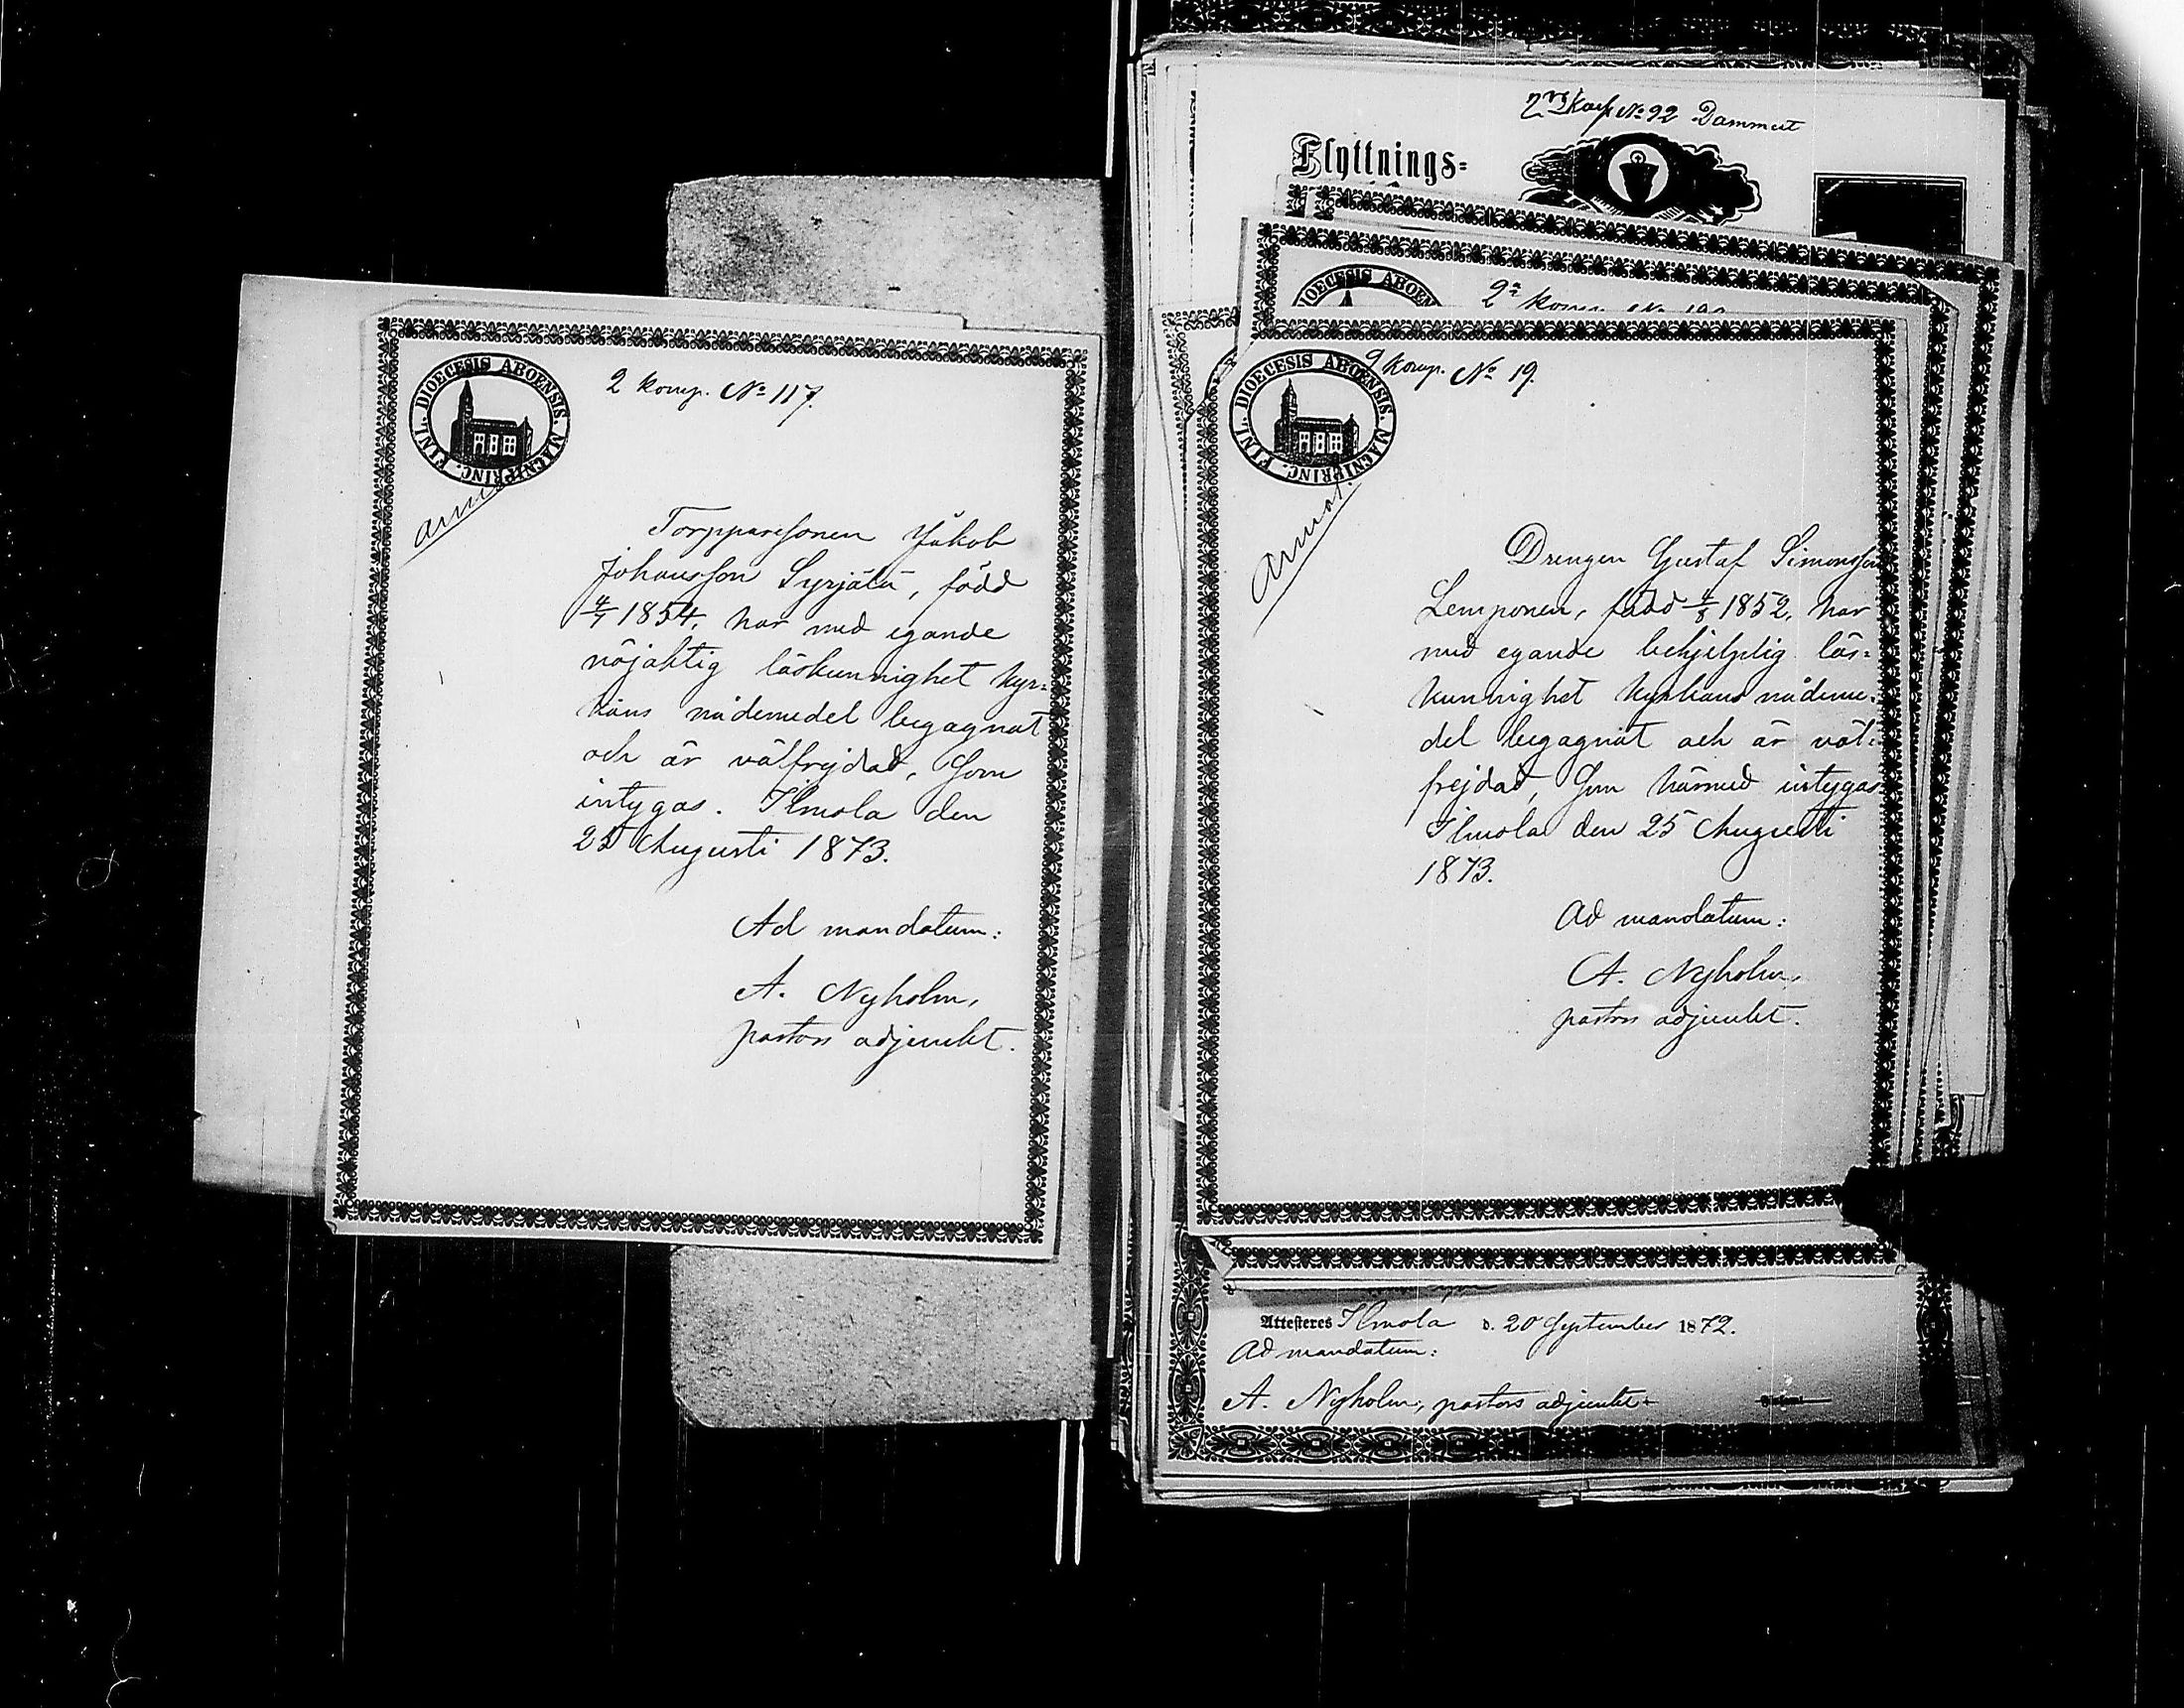 DIOECESIS ABOENSIS. MAGNI PRINC. FINL.
2 komp. No 117.
Torpparesonen Jakob
Johansson Syrjälä, född
4/7 1854, har med egande
nöjaktig läskunnighet kyr-
kans nådemedel begagnat
och är välfrejdad, Som
intygas. Ilmola den
25 Augusti 1873.
Ad mandatum:
A. Nyholm,
pastors adjunkt.
No 92 Dammert
Flyttnings-
DIOECESIS ABOEN
2a komp. No
DIOECESIS ABOENSIS. MAGNI PRINC. FINL.
9 komp. No 19.
Drengen Gustaf Simonsson
Lemponen, född 4/8 1852, har
med egande behjelplig läs-
kunnighet kyrkans nådeme-
del begagnat och är väl-
frejdad, Som härmed intygas
Ilmola den 25 Augusti
1873.
Ad mandatum:
A. Nyholm,
pastors adjunkt.
Attesteres Ilmola d. 20 September 1872.
Ad mandatum:
A. Nyholm, pastors adjunkt